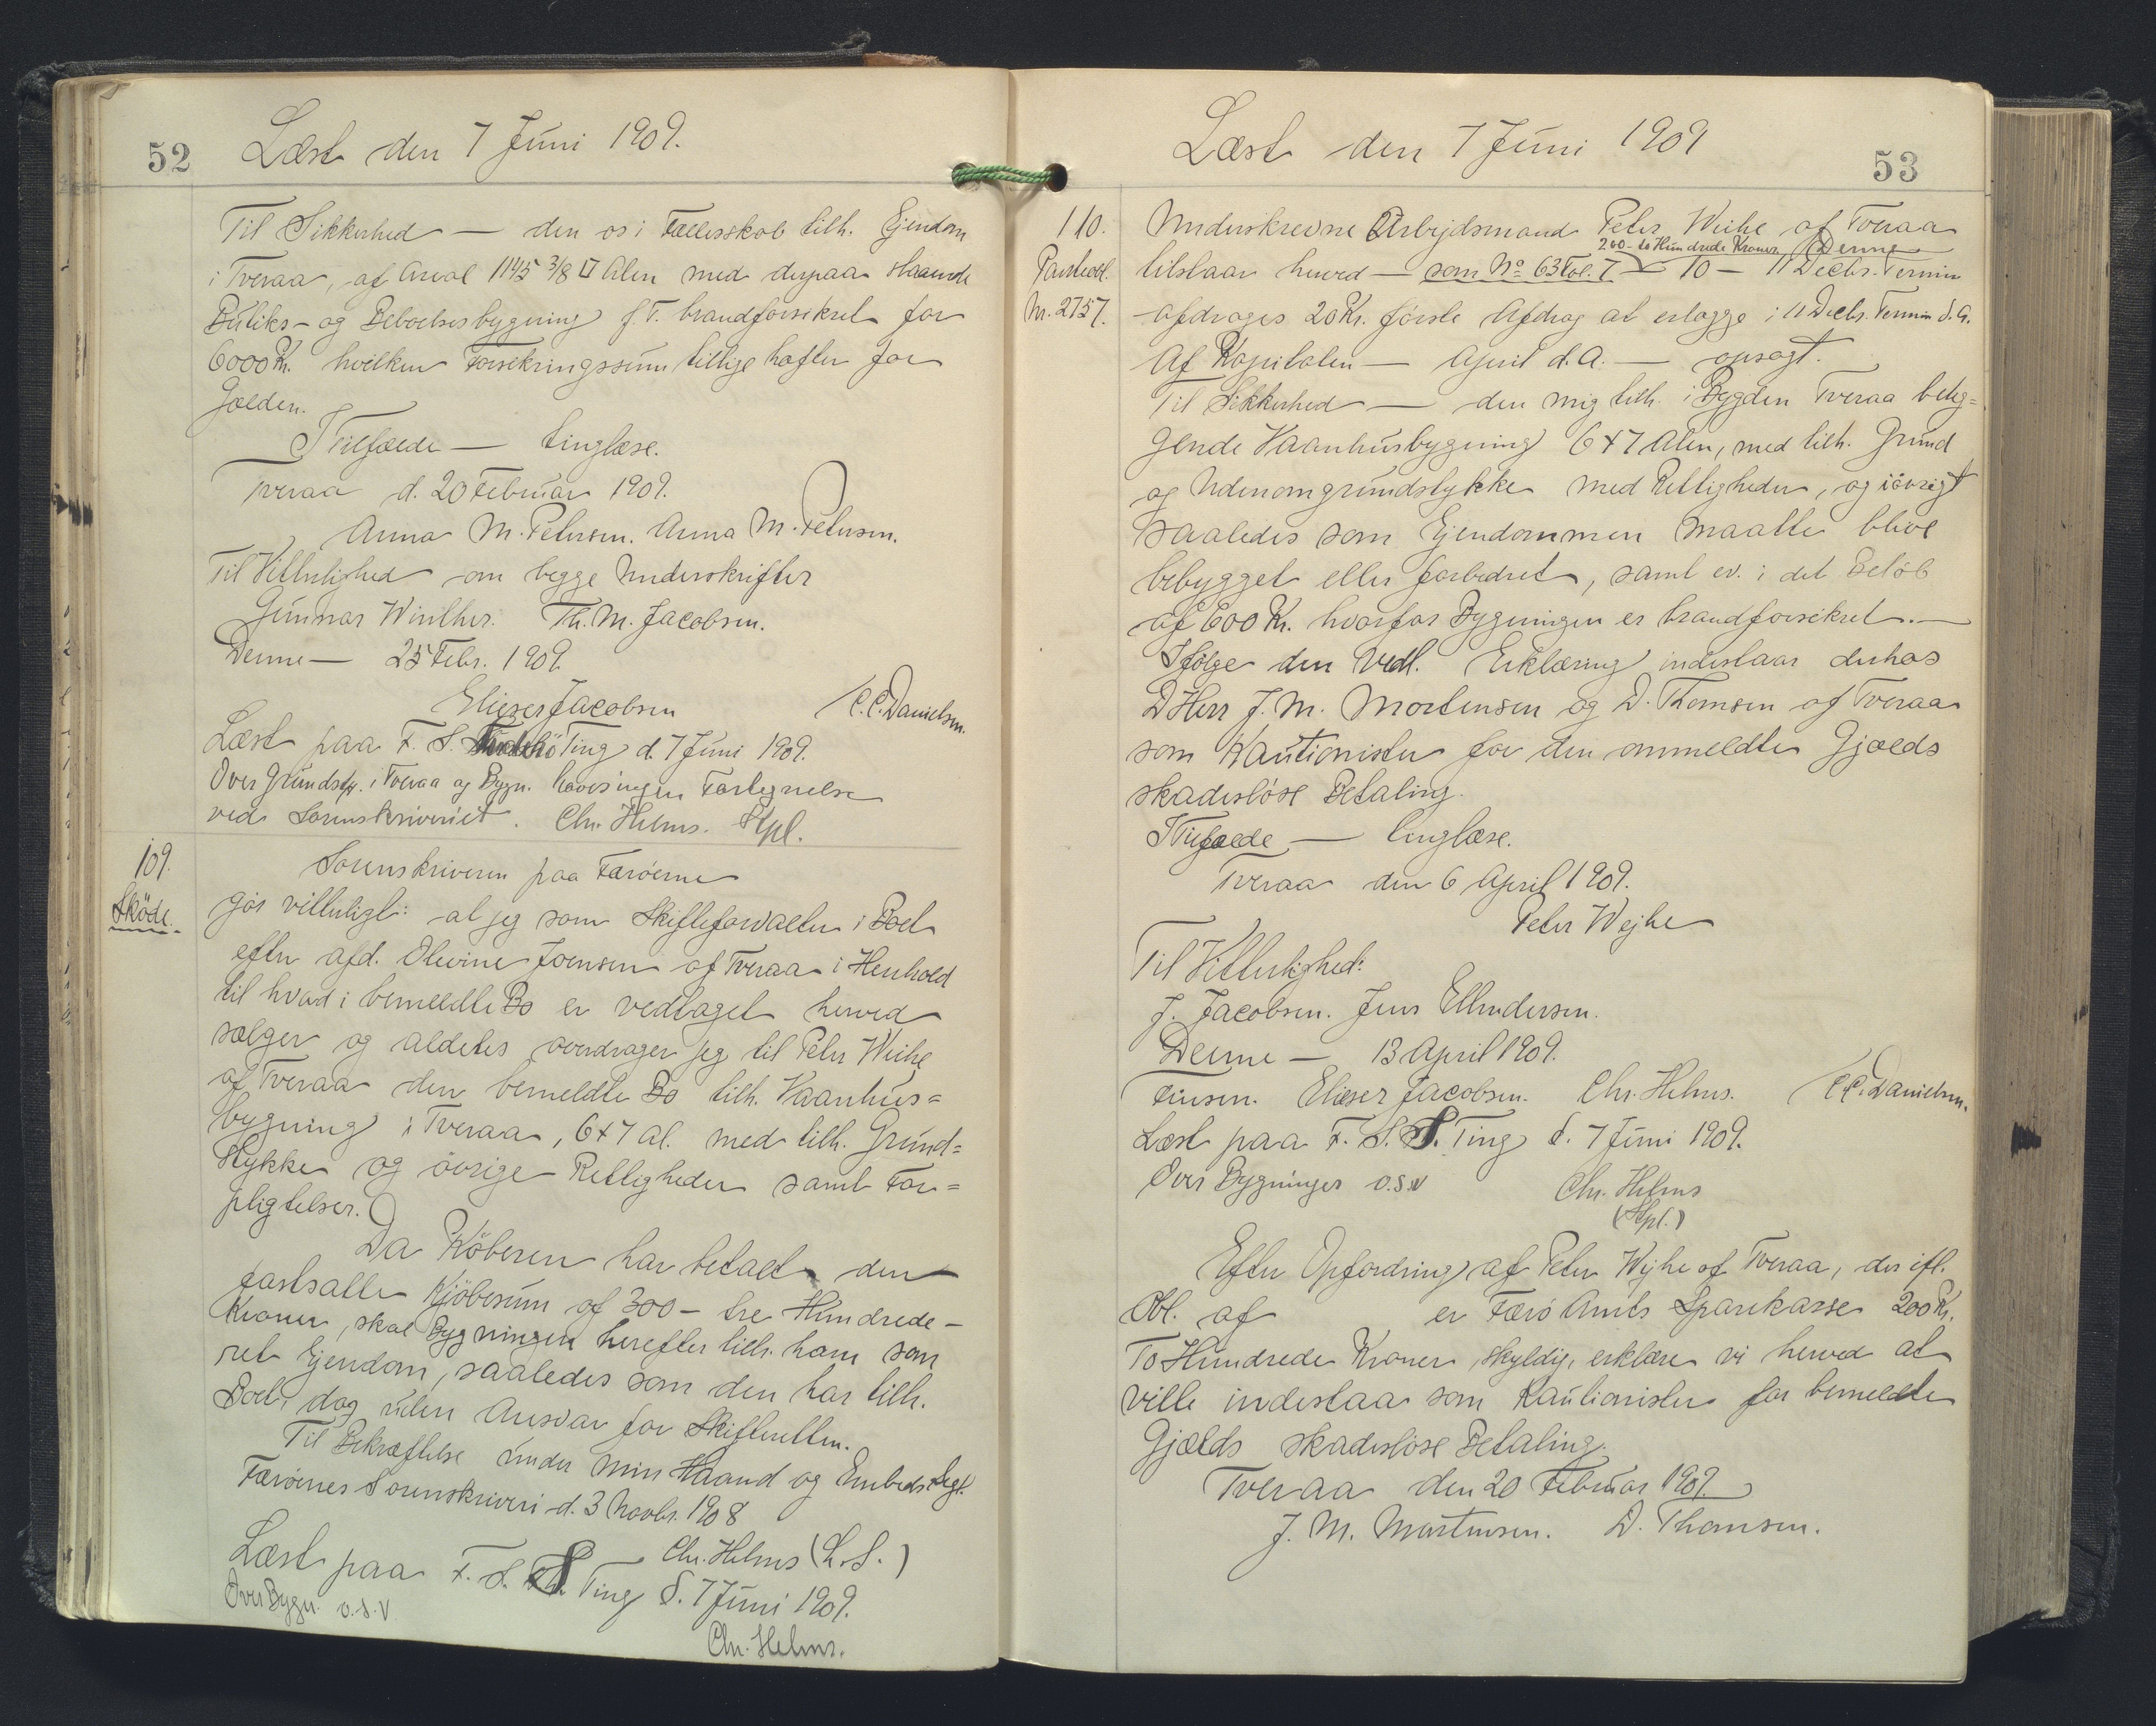 52
Læst den 7 Juni 1909.
Til Sikkerhed — den os i Fællesskab tilh. Ejendom
i Tveraa, af Areal 1145 3/8 □ Alen med derpaa staaende
Butiks- og Beboelsesbygning f. T. brandforsikret for
6000 Kr. hvilken Forsikringssum tillige hæfter for
Gælden.
I Tilfælde — tinglæse.
Tveraa d. 20 Februar 1909.
Anna M. Petersen. Anna M. Petersen.
Til Vitterlighed om begge Underskrifter
Gunnar Winther. Th. M. Jacobsen.
Denne — 25 Febr. 1909.
Elieser Jacobsen C.C. Danielsen.
Læst paa F. S. Ting d. 7 Juni 1909.
Over Grundstk. i Tveraa og Bygn. haves ingen Fortegnelse
ved Sorenskriveriet. Chr. Helms. Stpl.
109.
Sköde.
Sorenskriveren paa Færöerne
gör vitterligt: at jeg som Skifteforvalter i Boet
efter afd. Olevine Joensen af Tveraa i Henhold
til hvad i bemeldte Bo er vedtaget herved
sælger og aldeles overdrager jeg til Peter Weihe
af Tveraa den bemeldte Bo tilh. Vaanhus=
bygning i Tveraa, 6x7 al. med tilh. Grund=
stykke og övrige Rettigheder samt For=
pligtelser.
Da Köberen har betalt den
fastsatte Kjöbesum af 300 – tre Hundrede –
Kroner, skal Bygningen herefter tilh. ham som
ret Ejendom, saaledes som den har tilh.
Boet, dog uden Ansvar for Skifteretten.
Til Bekræftelse under min Haand og Embeds Segl.
Færöernes Sorenskriveri d. 3 Novbr. 1908
Chr. Helms (L.S.)
Læst paa F. S. S. Ting d. 7 Juni 1909.
Over Bygn. o.s.v
Chr. Helms.
53
Læst den 7 Juni 1909
110.
Panteobl.
M. 2757.
Underskrevne Arbejdsmand Peter Weihe af Tveraa
200 - to Hundrede Kroner. Denne
tilstaar herved — som No 63 Fol. 7 — 10 — 11 Decbr. Termin
afdrages 20 Kr. förste Afdrag at erlægge i 11 Decbr. Termin d. A.
Af Kapitalen — April d. A. — opsagt.
Til Sikkerhed — den mig tilh. i Bygden Tveraa belig=
gende Vaanhusbygning 6x7 Alen, med tilh. Grund
og Udenomgrundstykke med Rettigheder, og iövrigt
saaledes som Ejendommen maatte blive
bebygget eller forbedret, samt ev. i det Belöb
af 600 Kr. hvorfor Bygningen er brandforsikret. —
Ifölge den vedl. Erklæring indestaar derhos
D Herr J. M. Mortensen og D. Thomsen af Tveraa
som Kautionister for den ommeldte Gjælds
skadeslöse Betaling.
I Tilfælde — tinglæse.
Tveraa den 6 April 1909.
Peter Wejhe
Til Vitterlighed:
J. Jacobsen. Jens Ellendersen.
Denne — 13 April 1909.
Finsen. Elieser Jacobsen. Chr. Helms. C.C. Danielsen.
Læst paa F. S. S. Ting d. 7 Juni 1909.
Over Bygninger o.s.v
Chr. Helms
(Stpl.)
Efter Opfordring af Peter Wejhe af Tveraa, der ifl.
Obl. af er Færö Amts Sparekasse 200 Kr.
To Hundrede Kroner, skyldig, erklære vi herved at
ville indestaa som Kautionister for bemeldte
Gjælds skadeslöse Betaling.
Tveraa den 20 Februar 1909.
J. M. Mortensen. D. Thomsen.